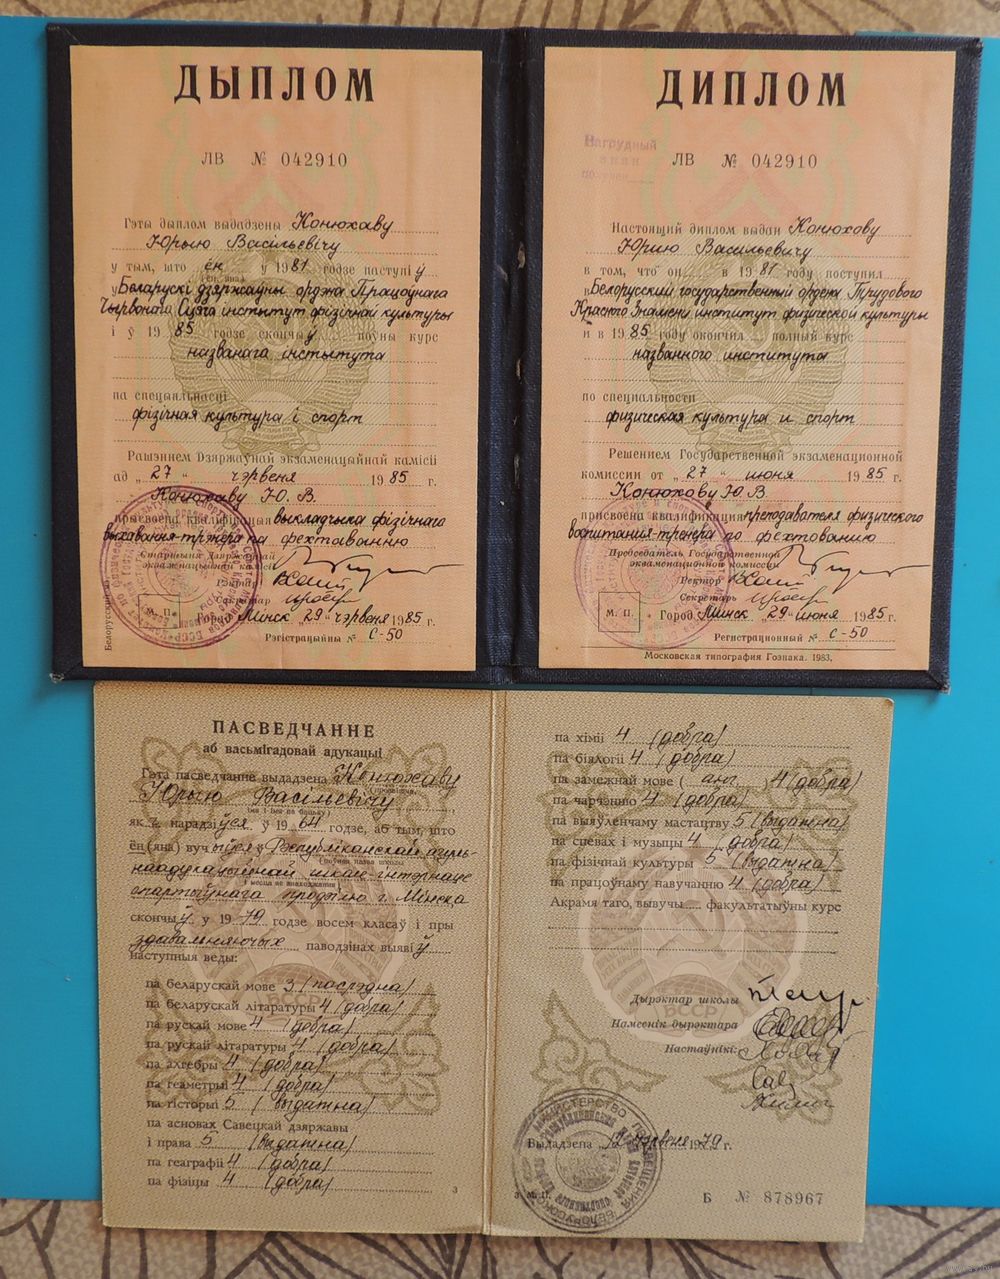 ДЫПЛОМ
ЛВ № 042910
Гэты дыплом выдадзены Конюхаву
Юрыю Васільевічу
у тым, што ён у 1981 годзе паступіў
(ён, яна)
у Беларускі дзяржаўны ордэна Працоўнага
Чырвонага Сцяга інстытут фізічнай культуры
і ў 1985 годзе скончыў поўны курс
названага інстытута
па спецыяльнасці
фізічная культура і спорт
Рашэннем Дзяржаўнай экзаменацыйнай камісіі
ад „27“ чэрвеня 1985 г.
Конюхаву Ю. В.
прысвоена кваліфікацыя выкладчыка фізічнага
выхавання-трэнера па фехтаванню
Старшыня Дзяржаўнай
экзаменацыйнай камісіі
Рэктар
Сакратар
М. П.
Горад Мінск „29“ чэрвеня 1985 г.
Рэгістрацыйны № С-50
ДИПЛОМ
Нагрудный
знак
ЛВ № 042910
Настоящий диплом выдан Конюхову
Юрию Васильевичу
в том, что он в 1981 году поступил
в Белорусский государственный ордена Трудового
Красного Знамени институт физической культуры
и в 1985 году окончил полный курс
названного института
по специальности
физическая культура и спорт
Решением Государственной экзаменационной
комиссии от „27“ июня 1985 г.
Конюхову Ю.В.
присвоена квалификация преподавателя физического
воспитания-тренера по фехтованию
Председатель Государственной
экзаменационной комиссии
Ректор
Секретарь
М. П.
Город Минск „29“ июня 1985 г.
Регистрационный № С-50
Московская типография Гознака. 1983.
ПАСВЕДЧАННЕ
аб васьмігадовай адукацыі
Гэта пасведчанне выдадзена Конюхаву
(прозвішча,
Юрыю Васільевічу
імя і імя па бацьку)
які нарадзіўся ў 1964 годзе, аб тым, што
ён (яна) вучыўся ў Рэспубліканскай агуль-
(поўная назва школы
наадукацыйнай школе-інтэрнаце
і месца яе знаходжання)
спартыўнага профілю г. Мінска
скончыў у 1979 годзе восем класаў і пры
здавальняючых паводзінах выявіў
наступныя веды:
па беларускай мове 3 (пасрэдна)
па беларускай літаратуры 4 (добра)
па рускай мове 4 (добра)
па рускай літаратуры 4 (добра)
па алгебры 4 (добра)
па геаметрыі 4 (добра)
па гісторыі 5 (выдатна)
па асновах Савецкай дзяржавы
і права 5 (выдатна)
па геаграфіі 4 (добра)
па фізіцы 4 (добра)
БССР
3
па хіміі 4 (добра)
па біялогіі 4 (добра)
па замежнай мове (анг.) 4 (добра)
па чарчэнню 4 (добра)
па выяўленчаму мастацтву 5 (выдатна)
па спевах і музыцы 4 (добра)
па фізічнай культуры 5 (выдатна)
па працоўнаму навучанню 4 (добра)
Акрамя таго, вывучы факультатыўны курс
БССР
Дырэктар школы
Намеснік дырэктара
Настаўнікі:
Выдадзена „12“ чэрвеня 1979 г.
М. П.
Б № 878967